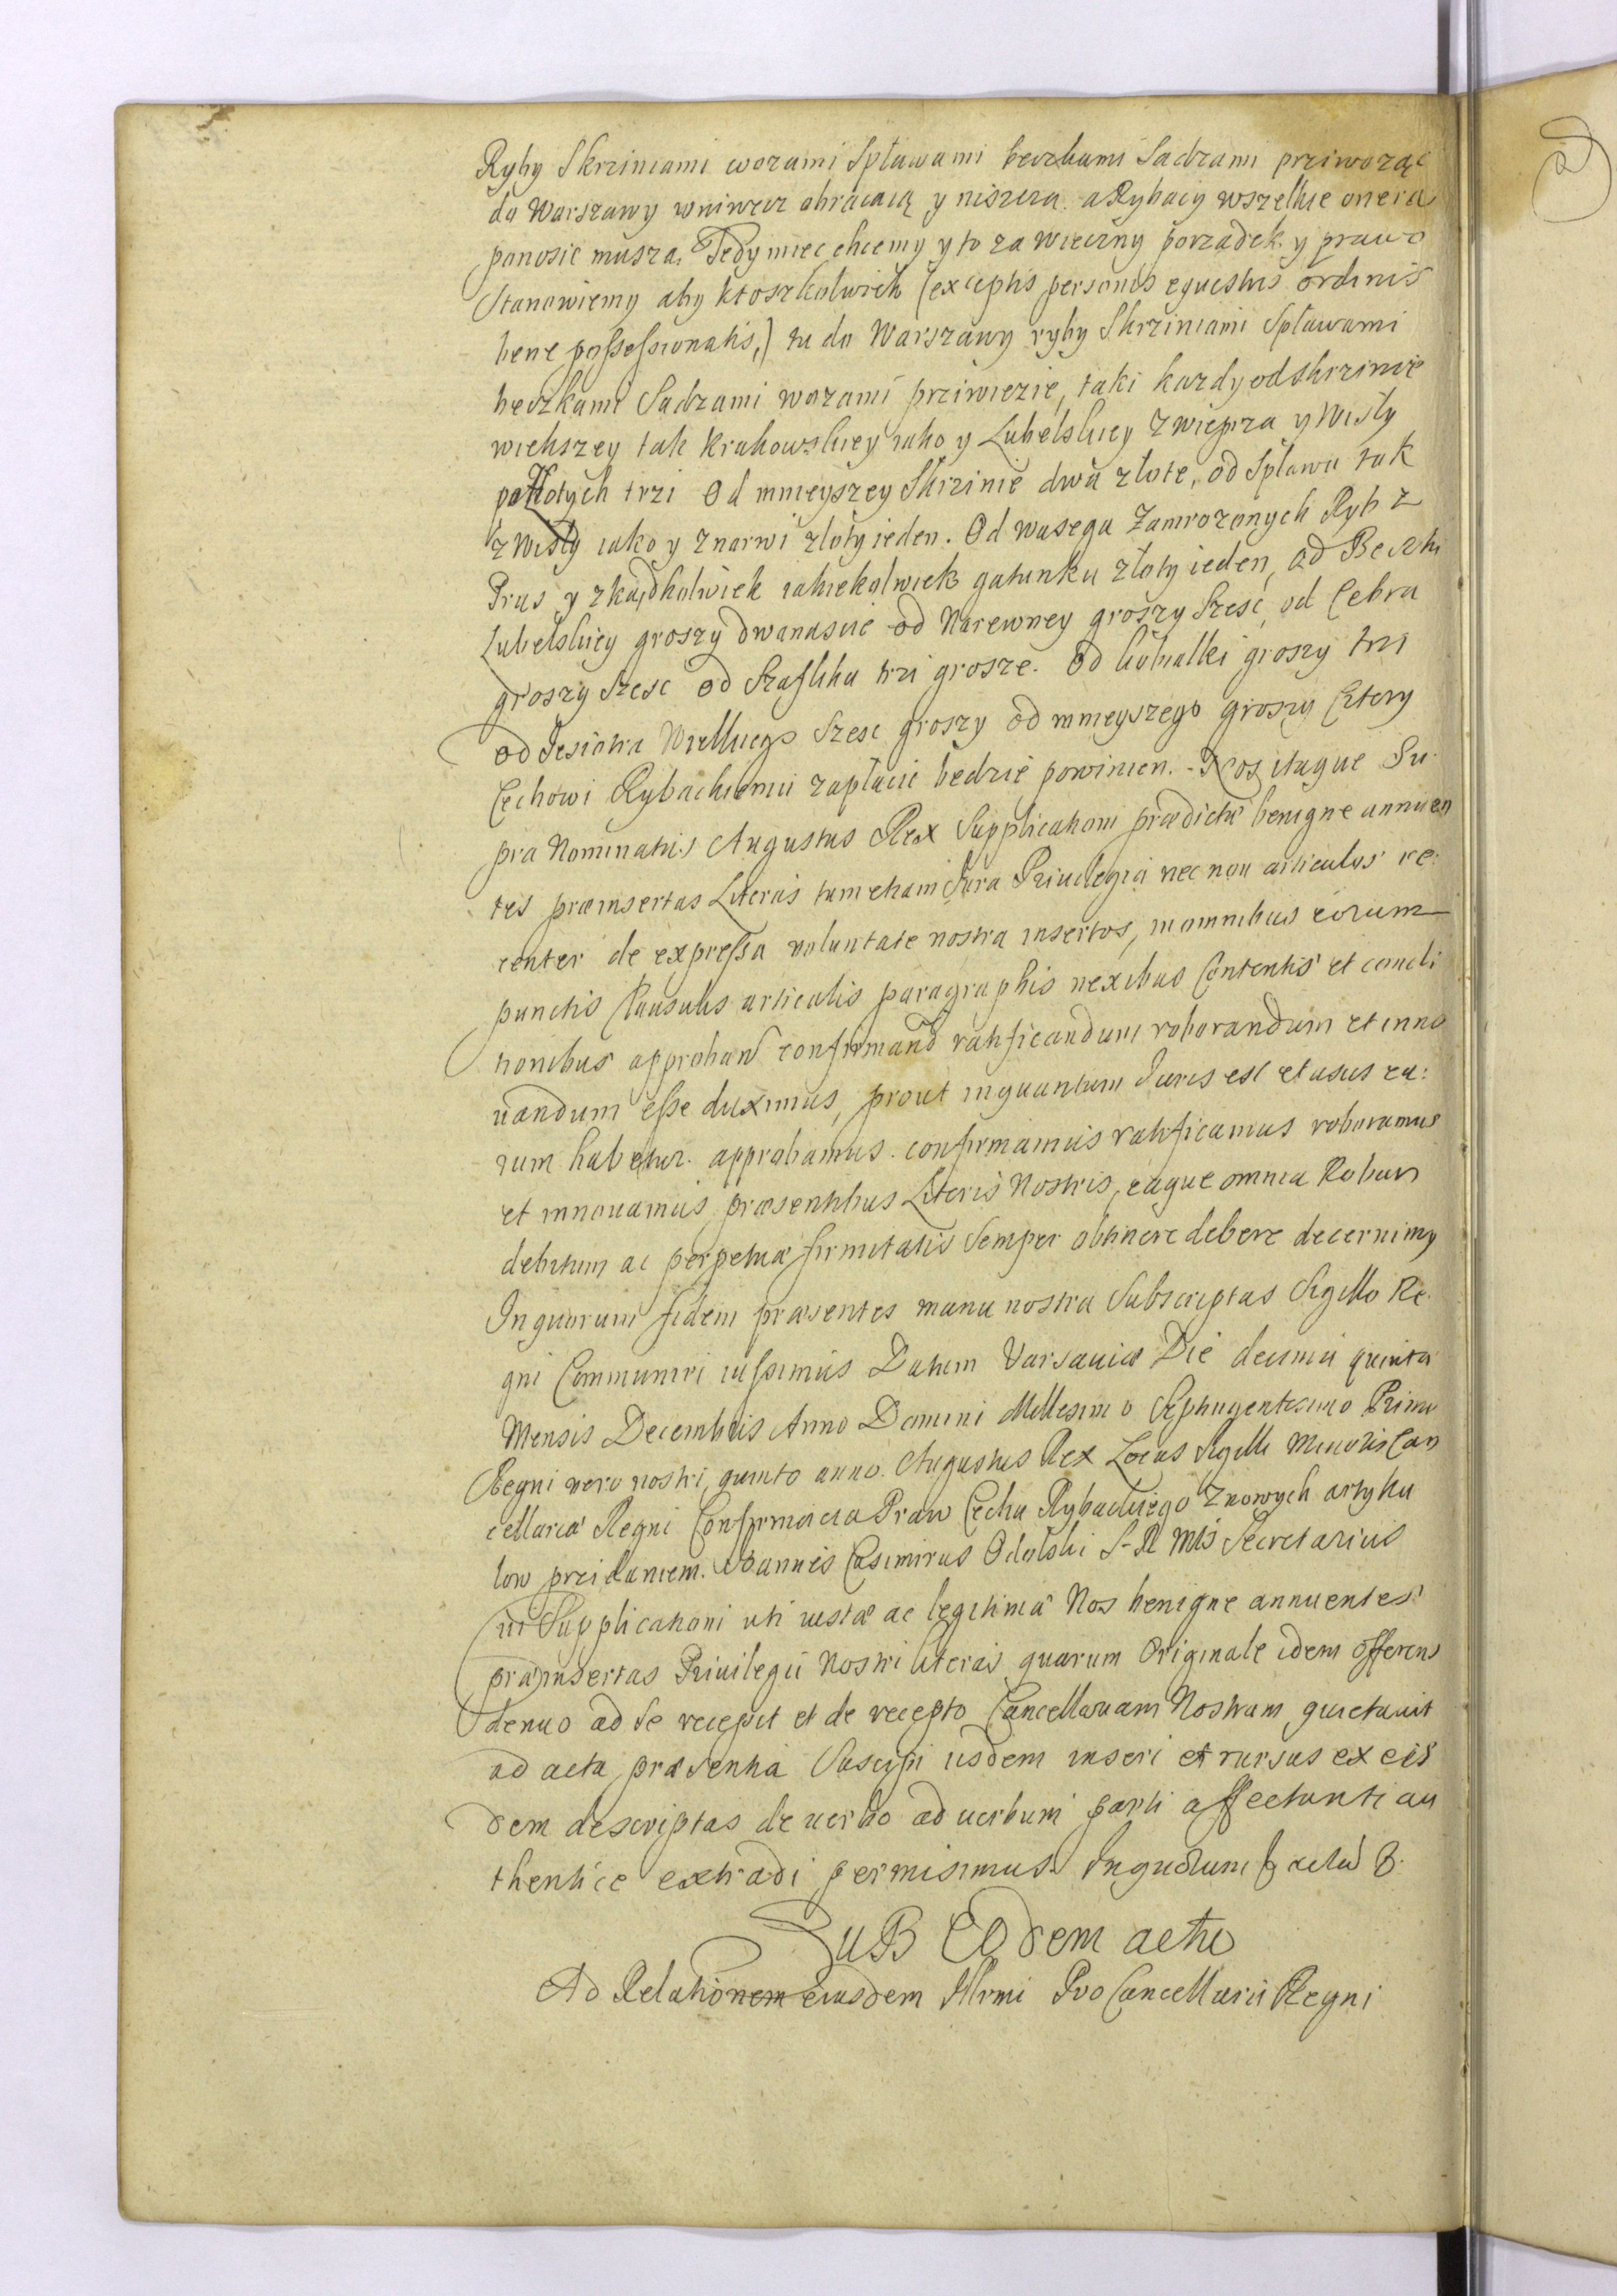 Ryby Skrziniami wozami Spławami beczkami Sadzami prziwożąc
do Warszawy wniwecz obracaią y niszcza. a Rybacy wszelkie onera
ponosic musza, Tedy miec chcemy y to za wieczny porządek y prawo
Stanowiemy aby ktoszkolwiek (exceptis personis equestris ordinis
bene possessionatis,) tu do Warszawy ryby Skrziniami Spławami
beczkami Sadzami wozami prziwiezie, taki kazdy od skrzinie
wiekszey tak krakowskiey iako y Lubelskiey z wieprza y Wisły
po złotych trzi Od mnieyszey Skrzinie dwa złote, od Spławu tak
z Wisły iako y z narwi złoty ieden. Od wasęgu Zamrozonych Ryb z
Prus y zkądkolwiek iakiekolwiek gatunku złoty ieden, od Beczki
Lubelskiey groszy dwanascie od Narewney groszy szesc, od Cebra
groszy szesc od Szaflika trzi grosze. Od kobiałki groszy trzi
od Jesiotra Wielkiego szesc groszy od mnieyszego groszy Cztery
Cechowi Rybackiemu zapłacic bedzie powinien. Nos itaque Su
pra Nominatus Augustus Rex Supplicationi prædictæ benigne annuen
tes præinsertas Literas tum etiam Jura Privilegia nec non articulos re:
center de expressa voluntate nostra insertos, in omnibus eorum
punctis Clausulis articulis paragraphis nexibus Contentis et condi
tionibus approband confirmand ratificandum roborandum et inno
uandum esse duximus, prout in quantum Juris est et usus ea:
rum habetur. approbamus. confirmamus ratificamus roboramus
et innouamus præsentibus Literis Nostris, eaque omnia Robur
debitum ac perpetuæ firmitatis Semper obtinere debere decernimus
In quorum fidem præsentes manu nostra Subscriptas Sigillo Re.
gni Communiri iussimus Datum Varsaviæ Die decima quinta
Mensis Decembris Anno Domini Millesimo Septingentesimo Primo
Regni vero nostri, quinto anno. Augustus Rex Locus Sigilli Minoris Can
cellariæ Regni Confirmacia Praw Cechu Rybackiego Z nowych artyku
łow przidaniem. Joannes Casimirus Odolski S. R Mtis Secretarius
cui Supplicationi uti iustæ ac legitimæ Nos benigne annuentes
præinsertas Privilegii Nostri literas quarum Originale idem offerens
denuo ad se recepit et de recepto Cancellariam Nostram quietauit
ad acta præsentia Suscipi iisdem inseri et rursus ex eis
dem descriptas de uerbo ad uerbum parti affectanti au
thentice extradi permisimus. In quorum
SuB EOdem actu
Ad Relationem eiusdem Illrmi ProCancellarii Regni